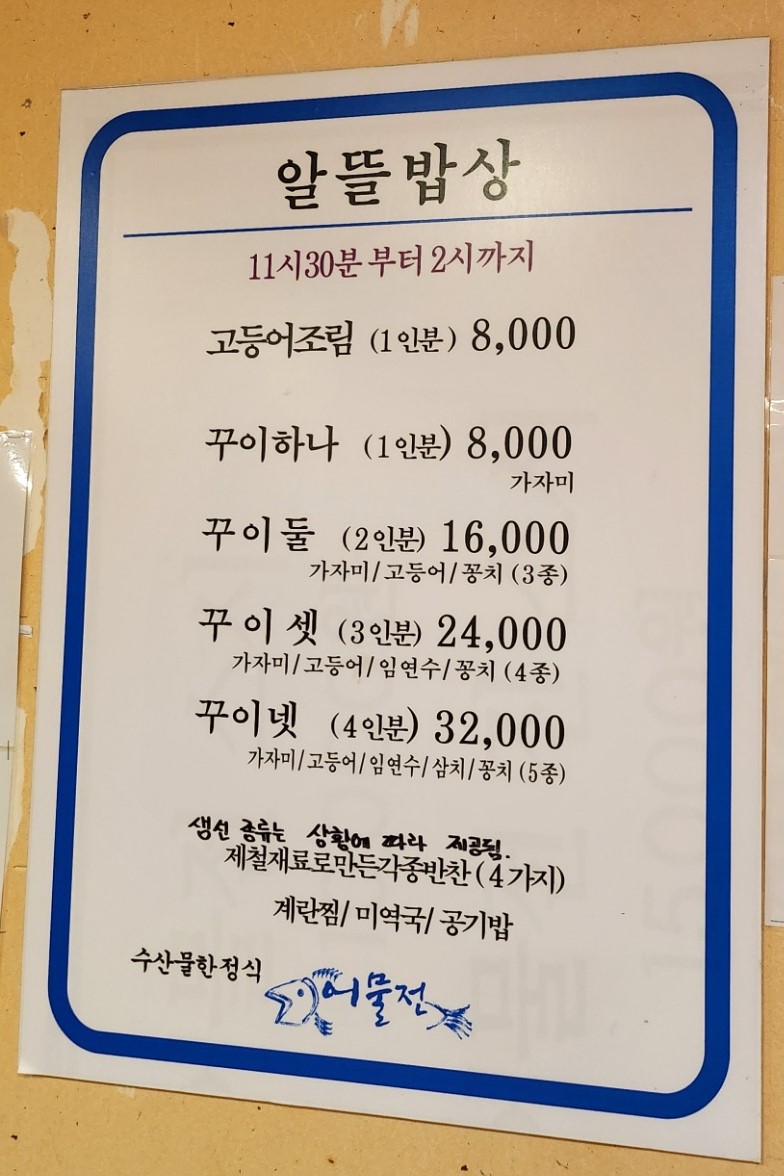 알뜰밥상
11시30분 부터 2시까지
고등어조림 (1인분) 8,000
꾸이하나 (1인분) 8,000
가자미
꾸이둘 (2인분) 16,000
가자미/고등어/꽁치 (3종)
꾸이셋 (3인분) 24,000
가자미/고등어/임연수/꽁치 (4종)
꾸이넷 (4인분) 32,000
가자미/고등어/임연수/삼치/꽁치 (5종)
생선 종류는 상황에 따라 제공됨.
제철재료로만든각종반찬 (4가지)
계란찜/ 미역국/ 공기밥
수산물한정식 어물전